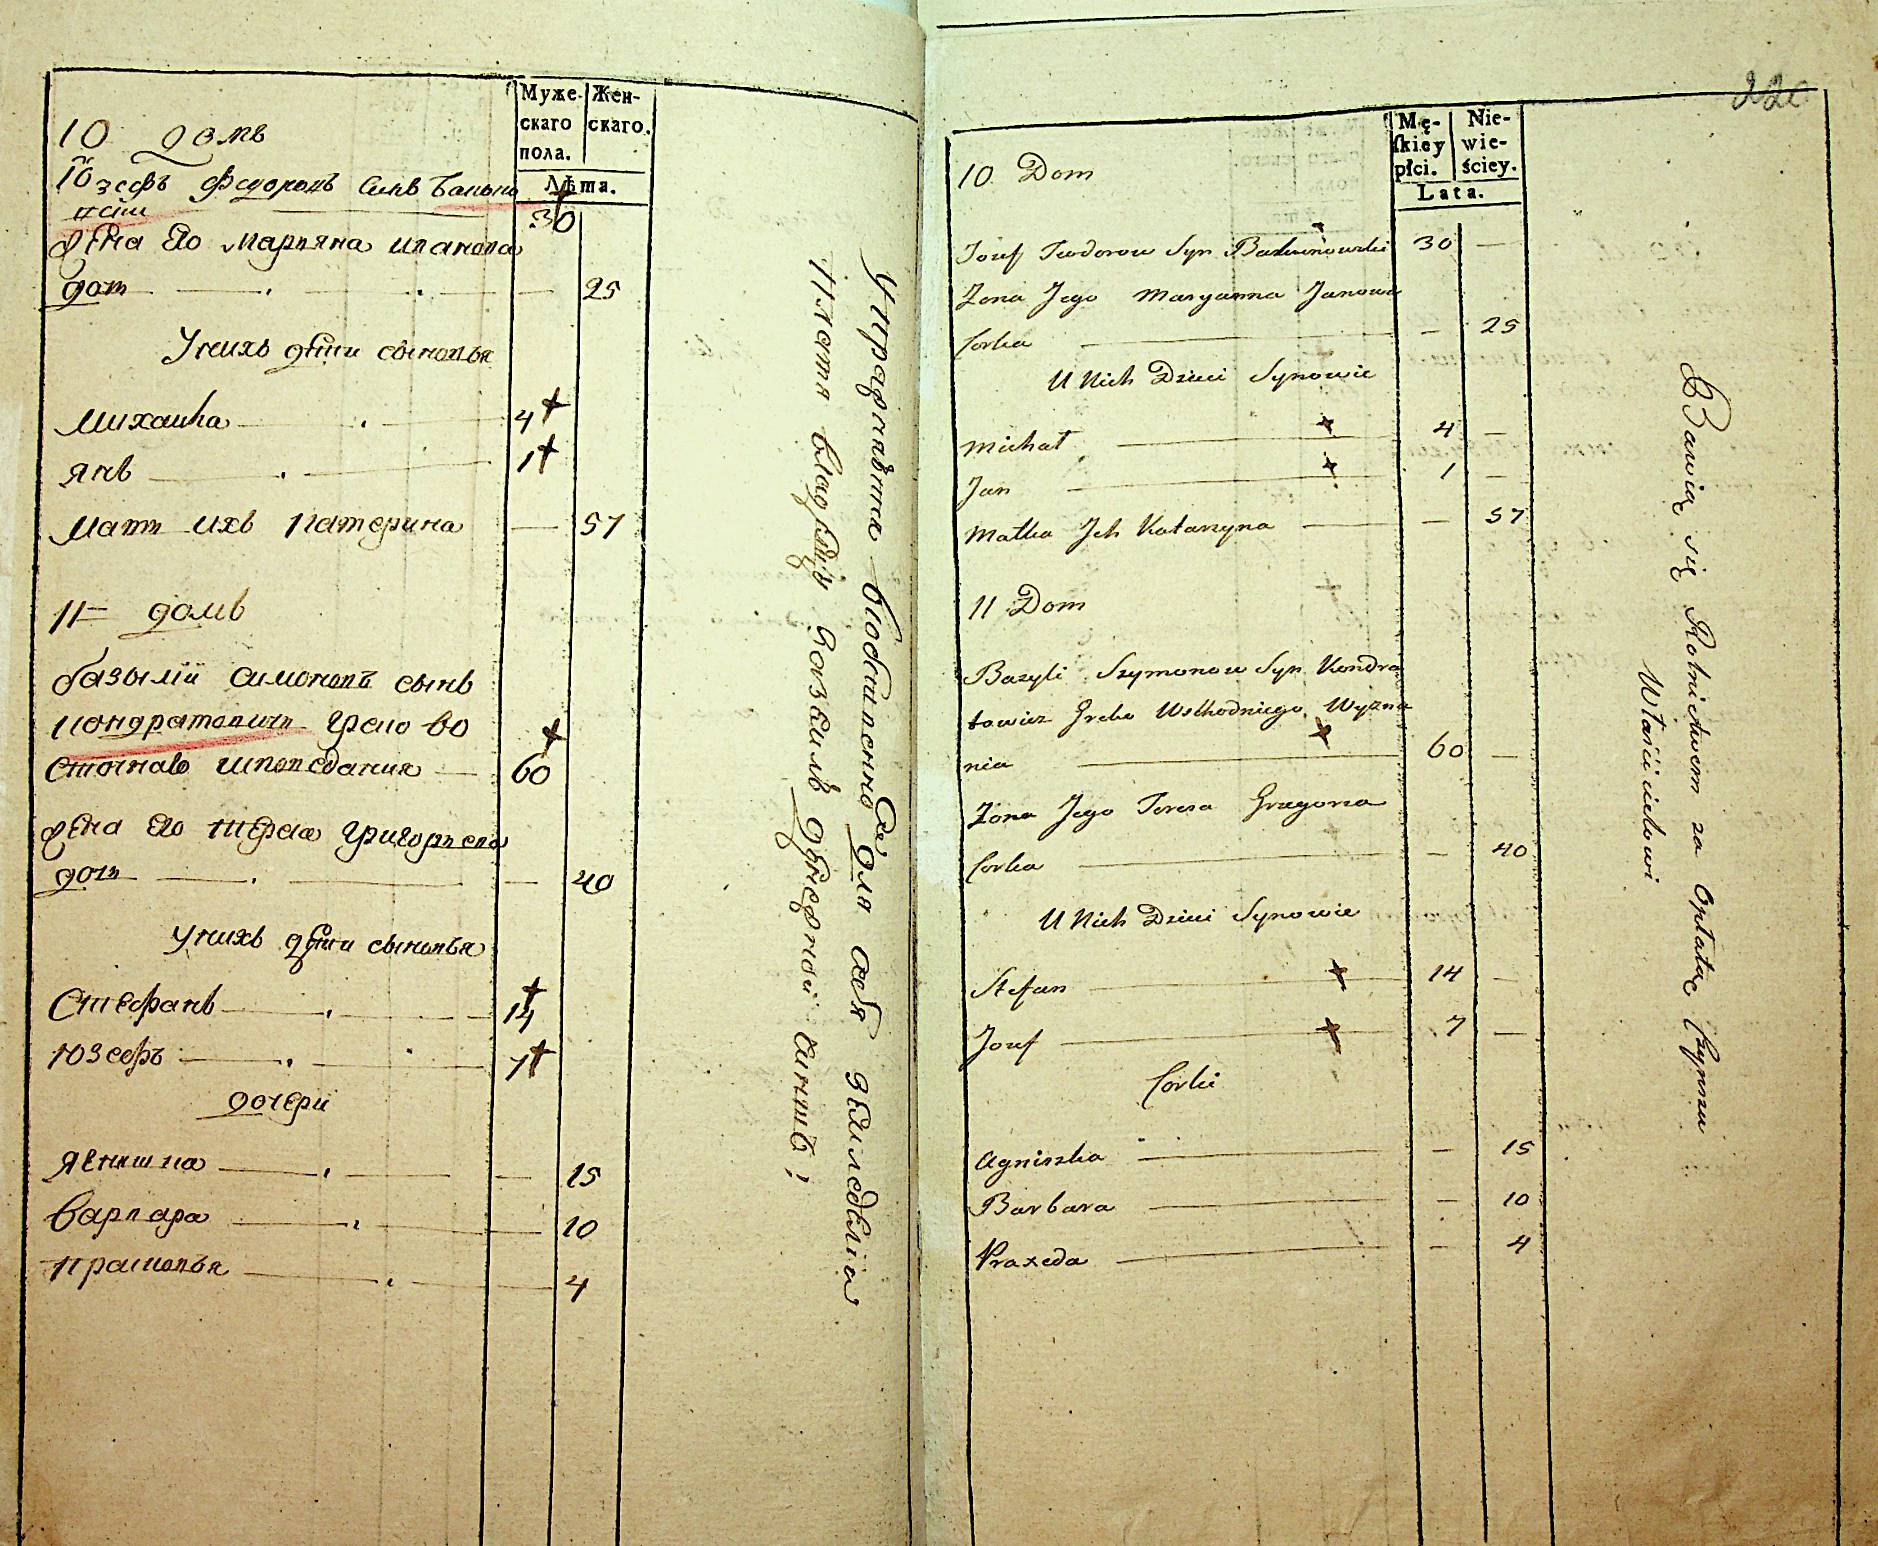 Муже-
скаго
пола.
Жен-
скаго.
Лѣта.
10 домъ
Юзефъ Федоровъ сынъ
30
жена его Марьяна Иванова
доч 25
У нихъ дѣти сыновья
Михайла 4
Янъ 1
Мать ихъ Катерина 57
11 домъ
Базылїй Симоновъ сынъ
Кондратовичъ Греко во
сточнаго исповедания 60
жена его Тереса Григорьева
дочь 40
У нихъ дѣти сыновья
Стефанъ 14
Юзефъ 7
дочери
Ягнишка 15
Варвара 10
4
для себя земледѣлїя
220
Mę-
skiey
płci.
Nie-
wie-
ściey.
Lata.
10 Dom
Jozef Teodorow Syn 30
Żona Jego Maryanna Janowa
Corka 25
U Nich Dzieci Synowie
Michał 4
Jan 1
Matka Ich Katarzyna 57
11 Dom
Bazyli Szymonow Syn Kondra
towicz Greko Wschodniego Wyzna
nia 60
Żona Jego Teresa Gregorza
Corka 40
U Nich Dzieci Synowie
Stefan 14
Jozef 7
Corki
Agniszka 15
Barbara 10
Praxeda 4
Bawią się Rolnictwem za Opłatą Czynszu
Właścicielowi